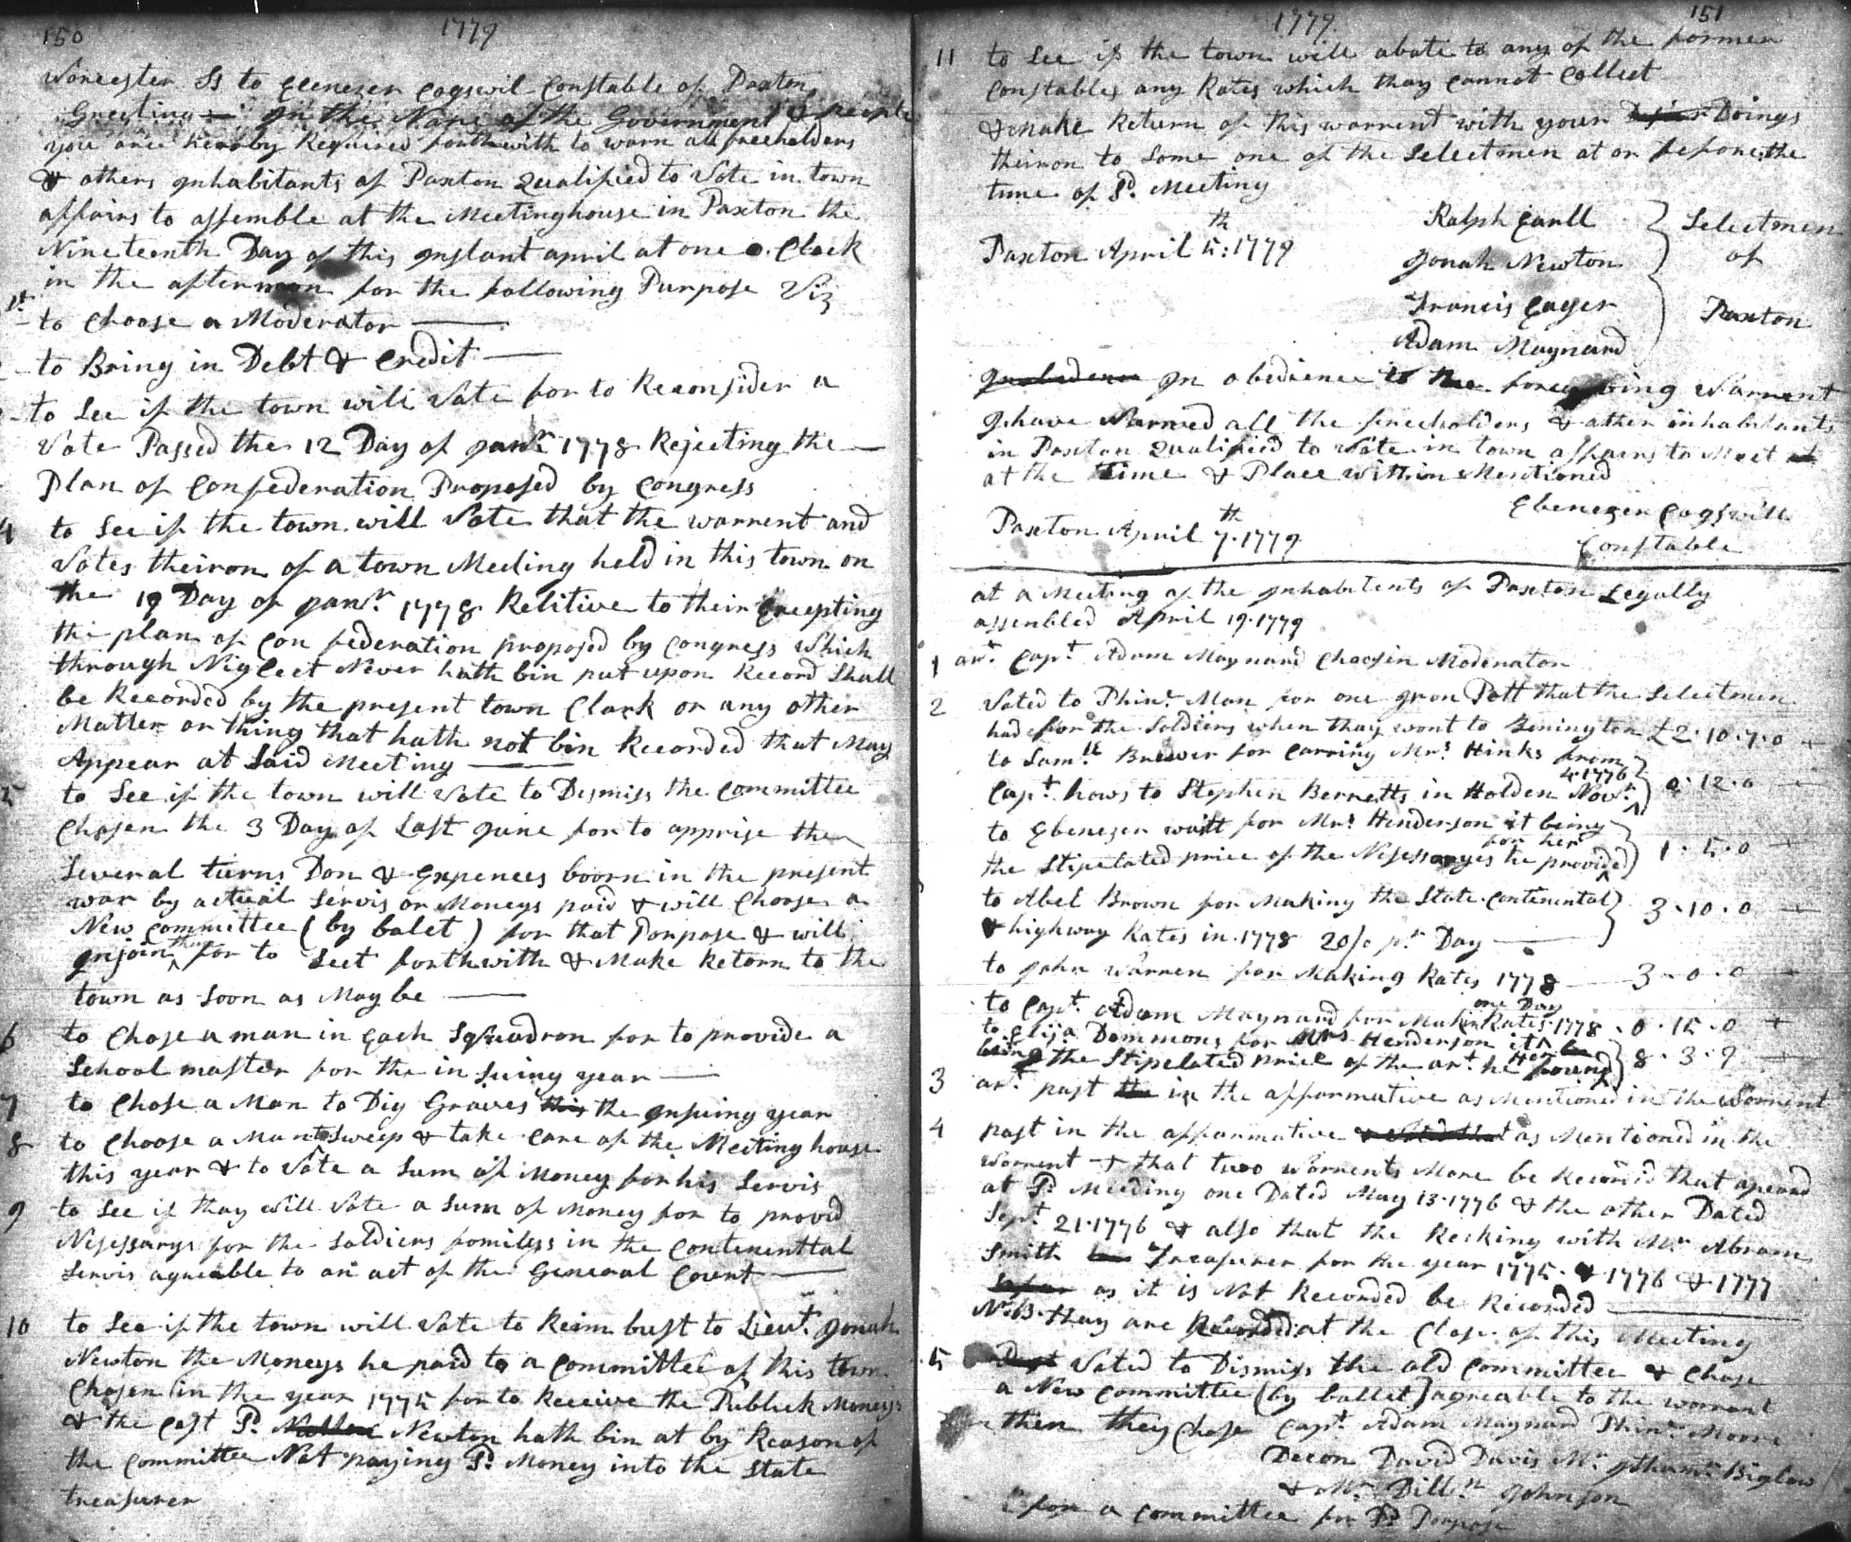 150
1779
Worcester Ss to Ebenezer Cogswil Constable of Paxton
Greeting — In the Name of the Government & people
you are hereby Required forthwith to warn all freeholders
& others Inhabitants of Paxton Qualified to Vote in town
affairs to assemble at the Meetinghouse in Paxton the
Nineteenth Day of this Instant april at one o Clock
in the afternoon for the following Purpose Viz
1st to Choose a Moderator
2 to Bring in Debt & Credit
3 to See if the town will Vote for to Reconsider a
Vote Passed the 12 Day of Janr 1778 Rejecting the
Plan of Confederation Proposed by Congress
4 to See if the town will Vote that the warrent and
Votes theiron of a town Meeting held in this town on
the 19 Day of Janr. 1778 Relitive to their Excepting
the plan of Confederation proposed by Congress Which
through Niglect Never hath bin put upon Record Shall
be Recorded by the present town Clark or any other
Matter or thing that hath not bin Recorded that May
Appear at Said Meeting
5 to See if the town will Vote to Dismiss the Committee
Chosen the 3 Day of Last June for to apprise the
Several turns Don & Expences boorn in the present
war by actual Servis or Moneys paid & will Choose a
New Committee (by balet) for that Porpose & will
Injoin them for to Seet forthwith & Make Retorn to the
town as Soon as May be
6 to Chose a man in Each Squadron for to provide a
School master for the in Suing year
7 to Chose a Man to Dig Graves this the Insuing year
8 to Choose a Man to Sweep & take Care of the Meeting house
this year & to Vote a Sum of Money for his Servis
9 to See if thay will Vote a Sum of Money for to provid
Nisessarys for the Soldiers fomileys in the Contenenttal
Servis agreable to an act of the General Court
10 to See if the town will Vote to Reimbust to Lieut. Jonah
Newton the Moneys he paid to a Committee of this town
Chosen in the year 1775 for to Receive the Publick Moneys
& the Cost Sd. Newton hath bin at by Reason of
the Committee Not paying Sd. Money into the State
treasurer
1779
151
11 to See if the town will abate to any of the former
Constables any Rates which thay Cannot Collect
& make Return of this warrent with your Doings
theiron to Some one of the Selectmen at or before the
time of Sd. Meeting
Paxton April 5th: 1779
Ralph Earll
Jonah Newton
Francis Eager
Adam Maynard
Selectmen
of
Paxton
In obedience to the foregoing Warrent
I have Warned all the freeholders & other inhabitants
in Paxton Qualified to Vote in town affairs to Meet at
at the Time & Place within Mentioned
Ebenezer Cogswill
Constable
Paxton April 7th. 1779
at a Meeting of the Inhabitents of Paxton Legally
assembled April 19. 1779
1 art. Capt Adam Maynard Choosin Moderator
2 Voted to Phinr. Man for one Iron Pott that the Selectmen
had for the Soldiers when thay wont to Benington £2.10.7.0
to Samll Brewer for Carring Mrs. Hinks from
Capt. hows to Stephen Bernetts in Holden Novr. 4.1776 0.12.0
to Ebenezer waitt for Mrs Henderson it being
the Stipelated price of the Nisessaryes he provided for her 1.5.0
to Abel Brown for Making the State Contenental
& highway Rates in 1778 20/0 pr Day 3.10.0
to John Warren for Making Rates 1778 3.0.0
to Capt. Adam Maynard for Makin Rates one Day 1778. 0.15.0
to Elija Demmons for Mrs Henderson it
being the Stipelated price of the art. he found Her 8.3.9
3 art. past in the affarmative as Mentioned in the Worrent
4 past in the affarmative as Mentioned in the
Worrent & that two Warrents More be Recorded that apeard
at Sd Meeding one Dated May 13.1776 & the other Dated
Sept 21.1776 & also that the Recking with Mr Abram
Smith Treasurer for the year 1775. & 1776 & 1777
as it is Not Recorded be Recorded
N.B. thay are Recorded at the Close of this Meeting
5 Voted to Dismiss the old Committee & Chose
a New Committee (by ballet) agreable to the worrant
then they Chose Capt. Adam Maynard Phinr. Moore
Decon David Davis Mr. Ithamr. Biglow
& Mr. Johnson
for a Committee for Sd Porpose